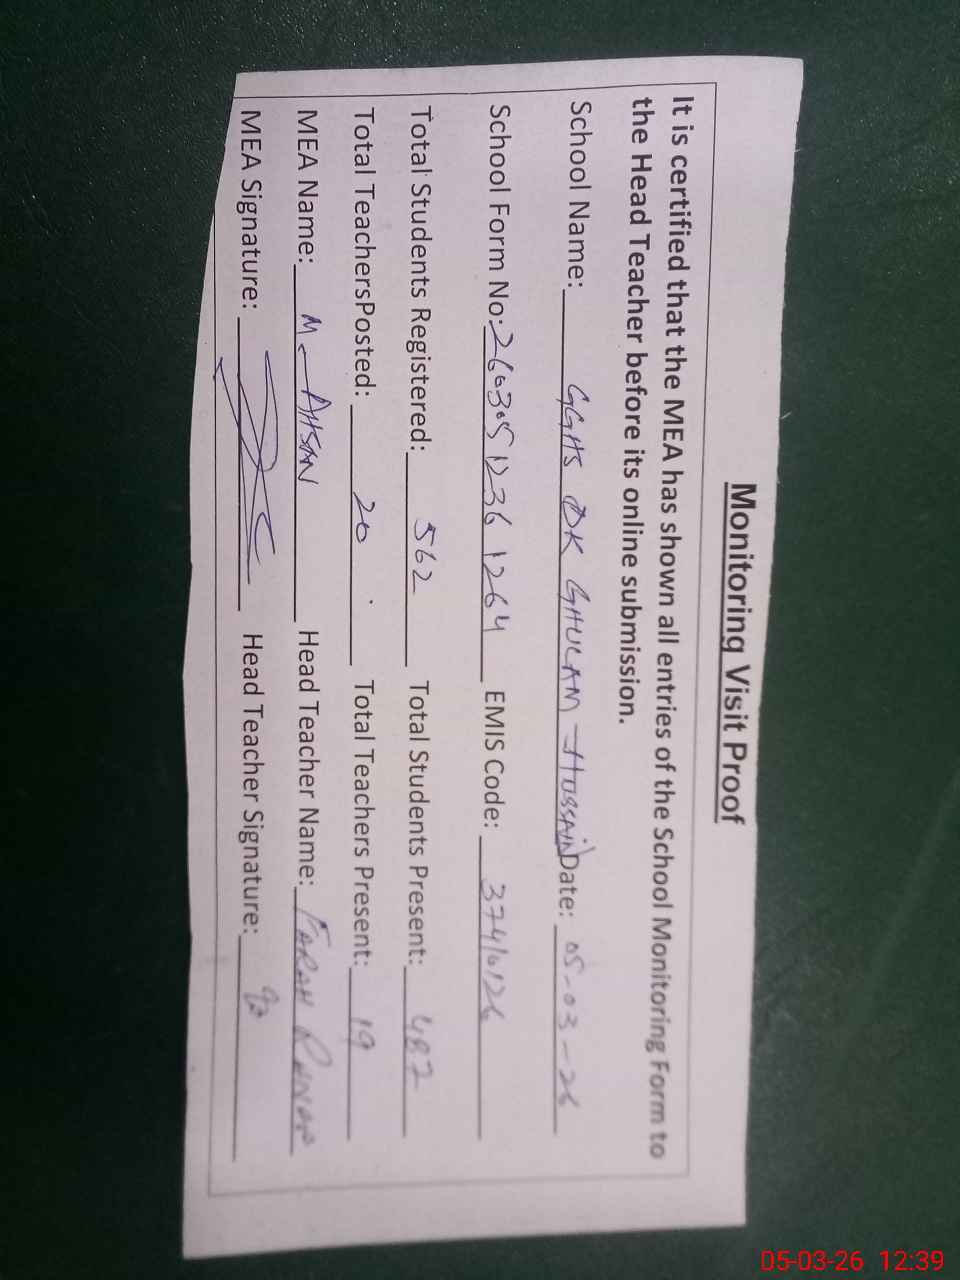 Monitoring Visit Proof
It is certified that the MEA has shown all entries of the School Monitoring Form to
the Head Teacher before its online submission.
School Name: GGHS DK GHULAM HUSSAIN Date: 05-03-26
School Form No: 260305 1236 1264 EMIS Code: 37410126
Total Students Registered: 562 Total Students Present: 487
Total TeachersPosted: 20 Total Teachers Present: 19
MEA Name: M. AHSAN Head Teacher Name: FARAH
MEA Signature: Head Teacher Signature:
05-03-26 12:39